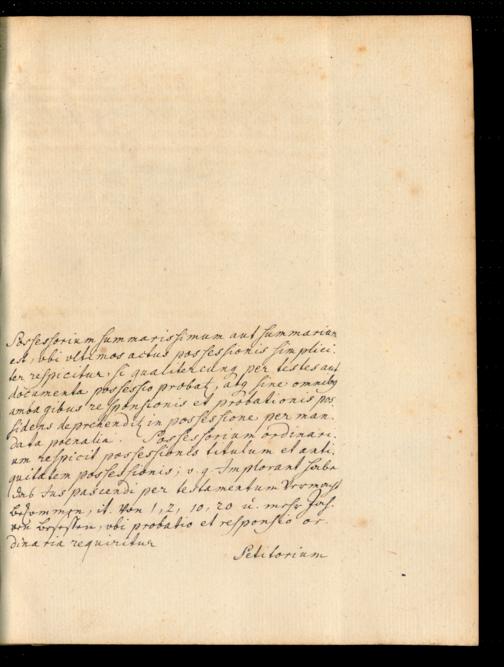 Possessorium summarissimum aut summarium
est, ubi ultimos actus possessionis simplici-
ter respicitur, si qualitercunq per testes aut
documenta possessio probat, atq sine omnibq
ambagibus responsionis et probationis pos
sidens deprehendit in possessione per man-
data poenalia. Possessorium ordinari-
um respicit possessionis titulum et anti-
quitatem possessionis; v. g. Implorant habe
das Jus pascendi per testamentum Vermacht
bekommen, it. von 1, 2, 10, 20 u. mehr Jah-
ren besessen, ubi probatio et responsio or-
dinaria requiritur
Petitorium